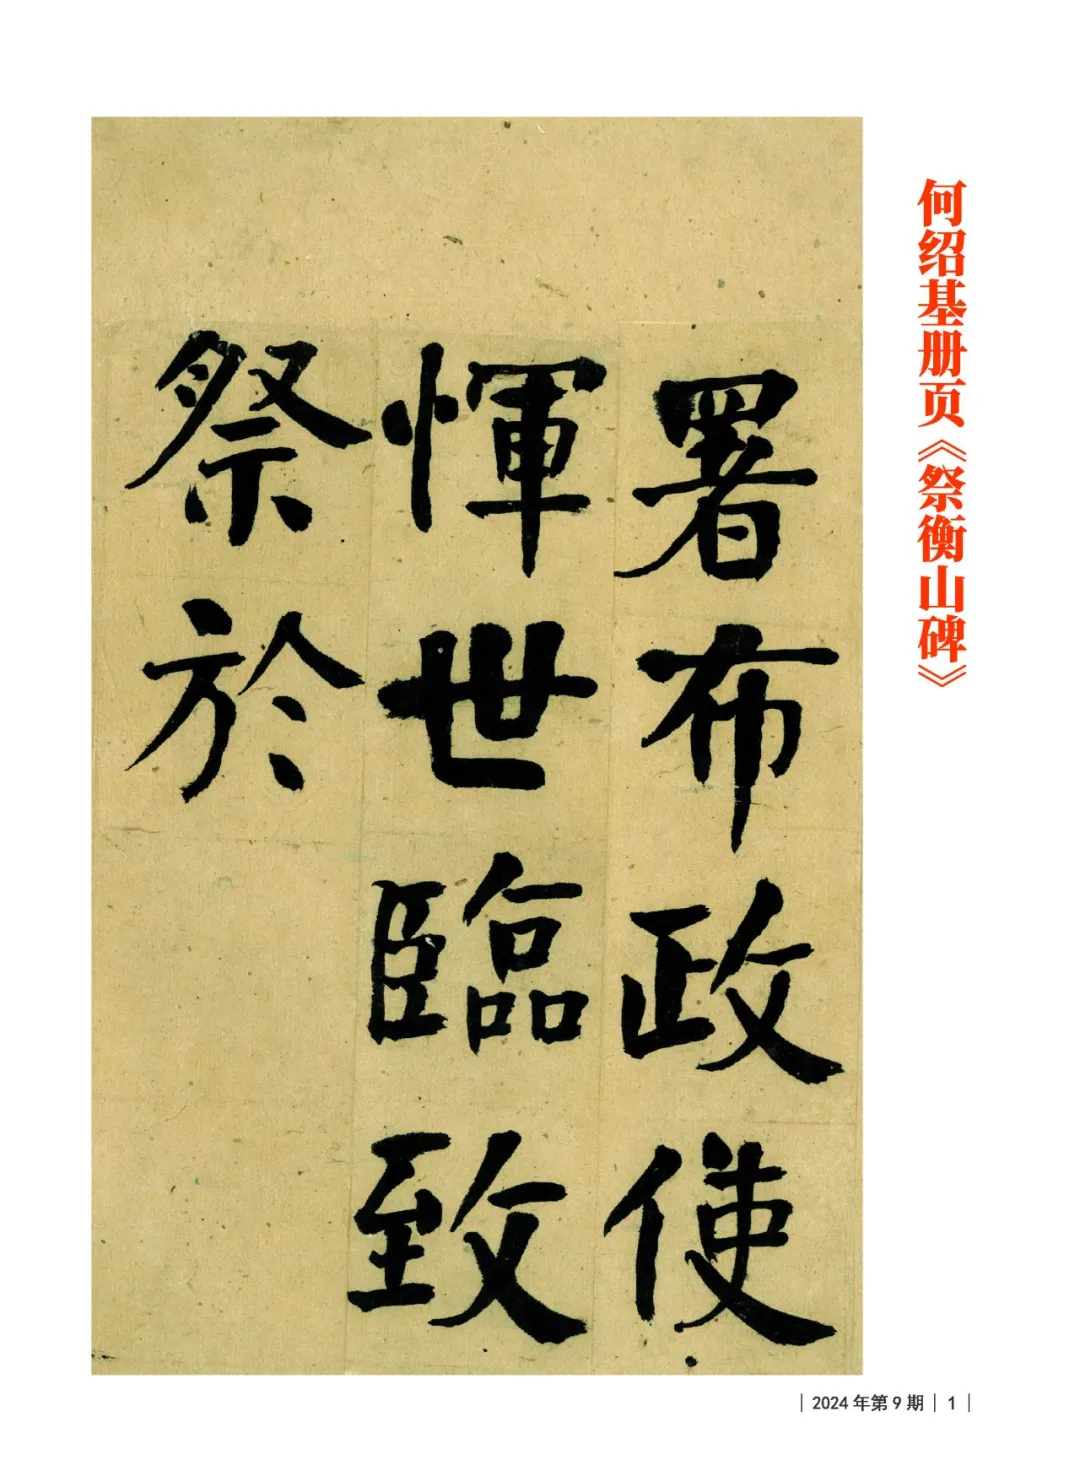 何绍基册页《祭衡山碑》
署布政使
惲世臨致
祭於
| 2024年第9期 | 1 |